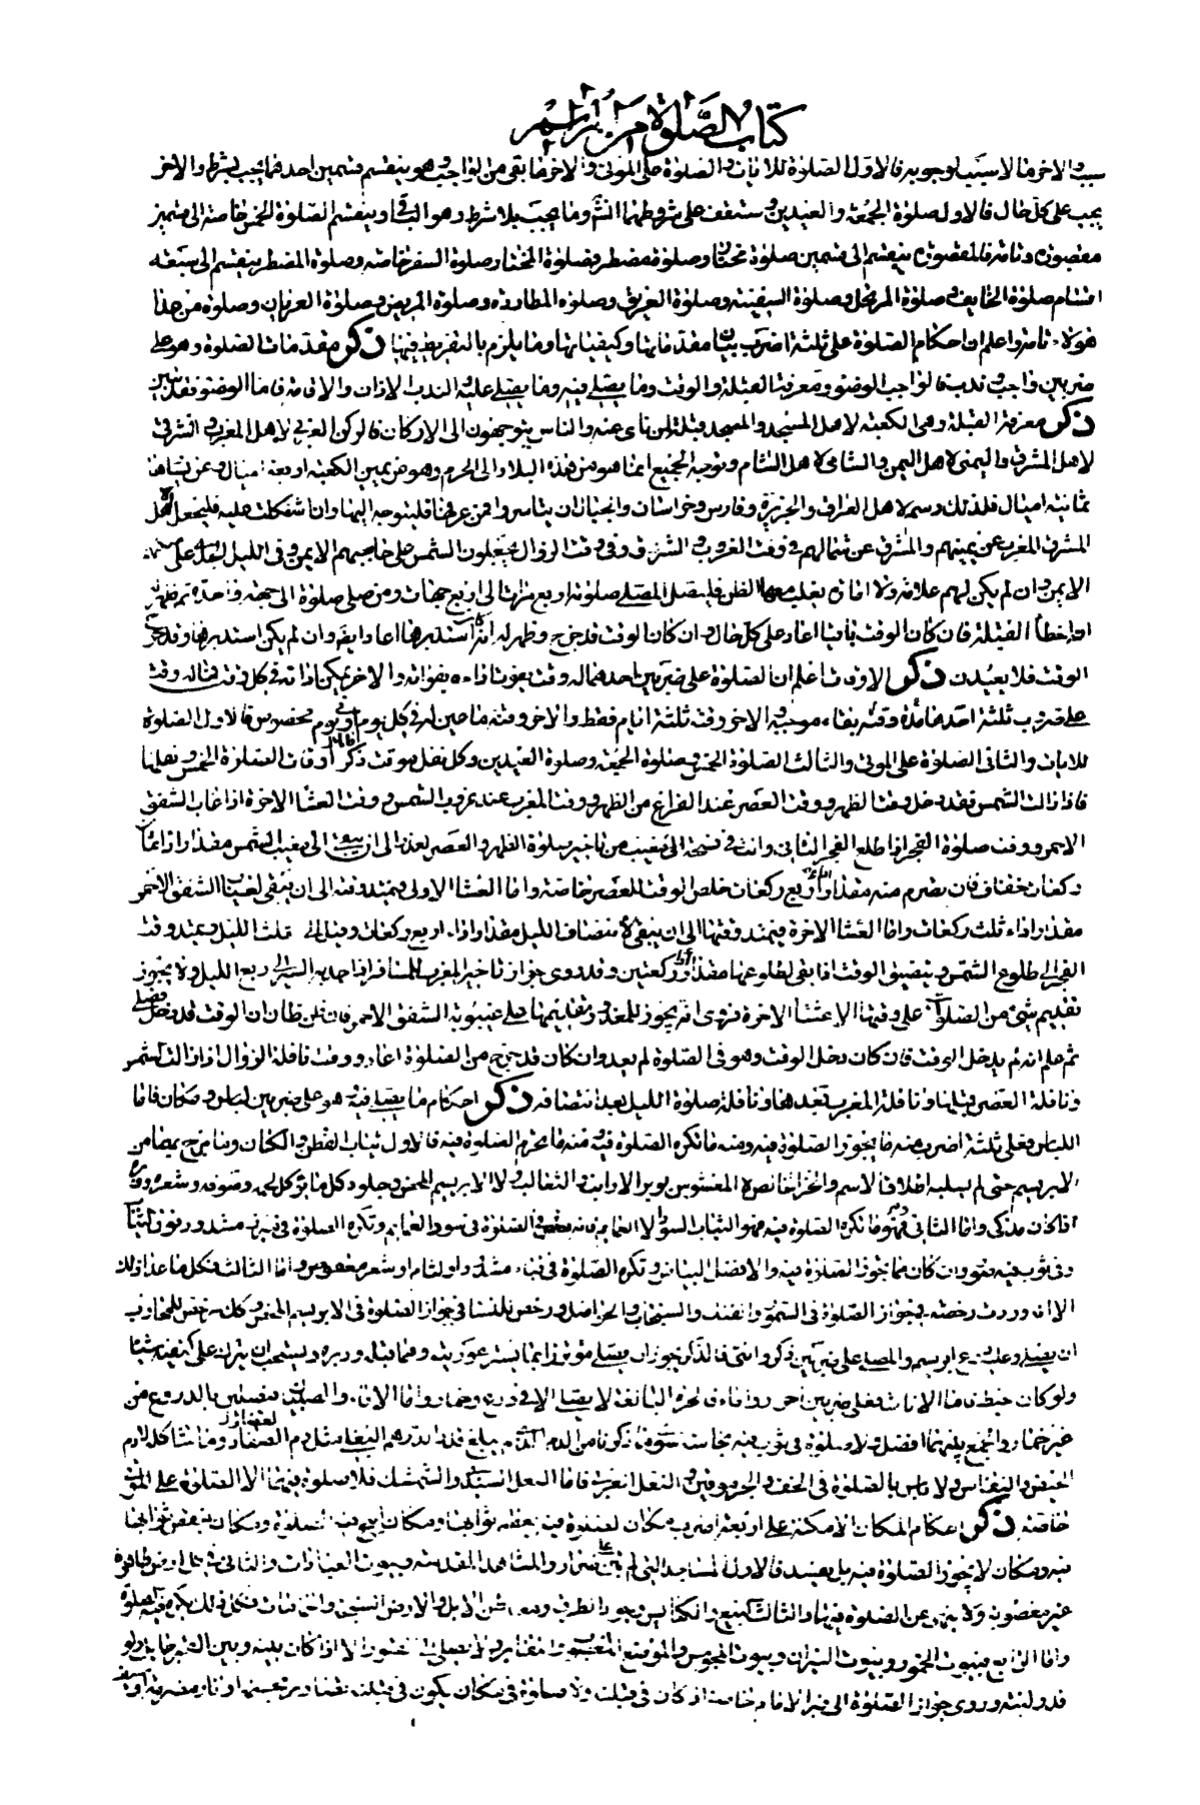 كتاب الصلوة من المراسم
سبب والاخر ما لا سبب لوجوبه فالاول الصلوة للايات والصلوة على الموتى والاخر ما بقى من الواجب وهو ينقسم قسمين احدهما يجب بشرط والاخر
يجب على كل حال فالاول صلوة الجمعة والعيدين وستقف على شروطهما انشاء وما يجب بلا شرط وهو الباقى وينقسم الصلوة الخمس خاصة الى قسمين
مقصورة وتامة فالمقصورة ينقسم الى قسمين صلوة مختار وصلوة مضطر فصلوة المختار صلوة السفر خاصة وصلوة المضطر ينقسم الى سبعة
اقسام صلوة الخايف وصلوة المرتحل وصلوة السفينة وصلوة الغريق وصلوة المطاردة وصلوة المريض وصلوة العريان وصلوة من عدا
هولاء تامة واعلم ان احكام الصلوة على ثلثة اضرب بيان مقدماتها وكيفياتها وما يلزم بالتفريط فيها ذكر مقدمات الصلوة وهو على
ضربين واجب وندب فالواجب الوضوء ومعرفة القبلة والوقت وما يصلى فيه وما يصلى عليه والندب الاذان والاقامة فاما الوضوء فقد بين
ذكر معرفة القبلة وهى الكعبة لاهل المسجد والمسجد قبلة من ناى عنه والناس يتوجهون الى الاركان فالركن الغربى لاهل المغرب والشرقى
لاهل المشرق واليمنى لاهل اليمن والشامى لاهل الشام وتوجه الجميع انما هو من هذه البلاد الى الحرم وهو عن يمين الكعبة اربعة اميال وعن يسارها
ثمانية اميال فلذلك رسم لاهل العراق والجزيرة وفارس وخراسان والجبال ان يتياسروا فمن عرفها فليتوجه اليها وان اشكلت عليه فليجعل اهل
المشرق المغرب عن يمينهم والمشرق عن شمالهم فى وقت الغروب والشرق وفى وقت الزوال يجعلون الشمس على حاجبهم الايمن وفى الليل الجدى على منكبه
الايمن وان لم يكن لهم علامة ولا امارة يغلب معها الظن فليصل المصلى صلوته اربع مرات الى اربع جهات ومن صلى صلوة الى جهة واحدة ثم ظهر له
انه اخطأ القبلة فان كان الوقت باقيا اعاد على كل حال وان كان الوقت قد خرج وظهر له انه استدبرها اعاد ايضا وان لم يكن استدبرها وقد خرج
الوقت فلا يعيدن ذكر الاوقات اعلم ان الصلوة على ضربين احدهما له وقت يفوت اداءه بفواته والاخر يمكن اداءه فى كل وقت فما له وقت
على ضروب ثلثة احدها مدة وقته بقاء موجبه والاخر وقته ثلثة ايام فقط والاخر وقته ما عين له فى كل يوم او فى يوم مخصوص فالاول الصلوة
للايات والثانى الصلوة على الموتى والثالث الصلوة الخمس وصلوة الجمعة وصلوة العيدين وكل نفل موقت ذكر اوقات الصلوة الخمس ونفلها
فاذا زالت الشمس فقد دخل وقت الظهر ووقت العصر عند الفراغ من الظهر ووقت المغرب عند غروب الشمس ووقت العشاء الاخرة اذا غاب الشفق
الاحمر ووقت صلوة الفجر اذا طلع الفجر الثانى وانت فى فسحة من تاخير صلوة الظهر والعصر لعذر الى ان يبقى الى مغيب الشمس مقدار اداء ثمانى
ركعات خفاف فان تصرم منه مقدار اداء اربع ركعات خلص الوقت للعصر خاصة واما العشاء الاولى فيمتد وقته الى ان يبقى لغياب الشفق الاحمر
مقدار اداء ثلث ركعات واما العشاء الاخرة فيمتد وقتها الى ان يبقى لانتصاف الليل مقدار اداء اربع ركعات وقيل الى ثلث الليل ويمتد وقت
الفجر الى طلوع الشمس ويتضيق الوقت اذا بقى لطلوعها مقدار اداء ركعتين وقد روى جواز تاخير المغرب للمسافر اذا جد به السير الى ربع الليل ولا يجوز
تقديم شئ من الصلوات على وقتها الا عشاء الاخرة فروى انه يجوز للمعذور تقديمها على غيبوبة الشفق الاحمر فان ظن ظان ان الوقت قد دخل فصلى
ثم علم انه لم يدخل الوقت فان كان دخل الوقت وهو فى الصلوة لم يعد وان كان قد خرج من الصلوة اعاد ووقت نافلة الزوال اذا زالت الشمس
ونافلة العصر قبلها ونافلة المغرب بعدها ونافلة صلوة الليل بعد انتصافه ذكر احكام ما يصلى فيه هو على ضربين لباس ومكان فاما
اللباس فعلى ثلثة اضرب منه ما يجوز الصلوة فيه ومنه ما تكره الصلوة فيه ومنه ما تحرم الصلوة فيه فالاول ثياب القطن والكتان وما مزج بهما من
الابريسم حتى لم يسلبه اطلاق الاسم والخز الخالص لا المغشوش بوبر الارانب والثعالب ولا الابريسم المحض وجلود كل ما يؤكل لحمه وصوفه وشعره ووبره
اذا كان مذكى واما الثانى فهو ما تكره الصلوة فيه فهو الثياب السود الا العمايم فانه رخص الصلوة فى سود العمايم وتكره الصلوة فى ثوب مشدود
وفى ثوب فيه صور وان كان مما يجوز الصلوة فيه والافضل البياض وتكره الصلوة فى قباء مشدود او لثام او شعر معقوص واما الثالث فكل ما عدا ذلك
الا انه وردت رخصة بجواز الصلوة فى السمور والفنك والسنجاب والخز اصل ورخص للنساء فى جواز الصلوة فى الابريسم المحض وكك رخص للمحارب
ان يصلى وعليه درع ابريسم والمصلى على ضربين ذكر وانثى فالذكر يجوز ان يصلى مؤتزرا بما يستر عورتيه وهما قبله ودبره ويستحب ان يترك على كتفيه شيئا
ولو كان خيطا فاما الاناث فعلى ضربين احرار واماء فالحرة البالغة لا يصلى الا فى درع وخمار واما الاماء والصبيان فيصلين بالدروع من
غير خمار والجمع بينهما افضل ولا صلوة فى ثوب فيه نجاسة سوى ما ذكرنا من الدم مبلغ قدر الدرهم مثل دم الفصاد وما شاكله لا دم
الحيض والنفاس ولا باس بالصلوة فى الخف والجرموقين والنعل العربية فاما النعل السندى والشمشك فلا صلوة فيهما الا الصلوة على الموتى
خاصة ذكر احكام المكان الامكنة على اربعة اضرب مكان للصلوة فيه يعظم ثوابها ومكان ابيح فيه الصلوة ومكان ينقص ثوابها
فيه ومكان لا يجوز الصلوة فيه بل يفسد فالاول المساجد التى لم تبن على ضرار والمشاهد المقدسة وبيوت العبادات والثانى فى ارض طاهرة
غير مغصوبة ولا ينهى عن الصلوة فيها والثالث البيع والكنايس وجواد الطرق ومعاطن الابل والارض السبخة والحمامات فكل ذلك يكره فيه الصلوة
واما الرابع فبيوت الخمور وبيوت النيران وبيوت المجوس والموضع المغصوب والمقابر ولا يصلى الا اذا كان بينه وبين القبر حايل ولو
قدر لبنة وروى جواز الصلوة الى قبر الامام خاصة اذ كان فى قبلته ولا صلوة فى مكان يكون فى قبلته